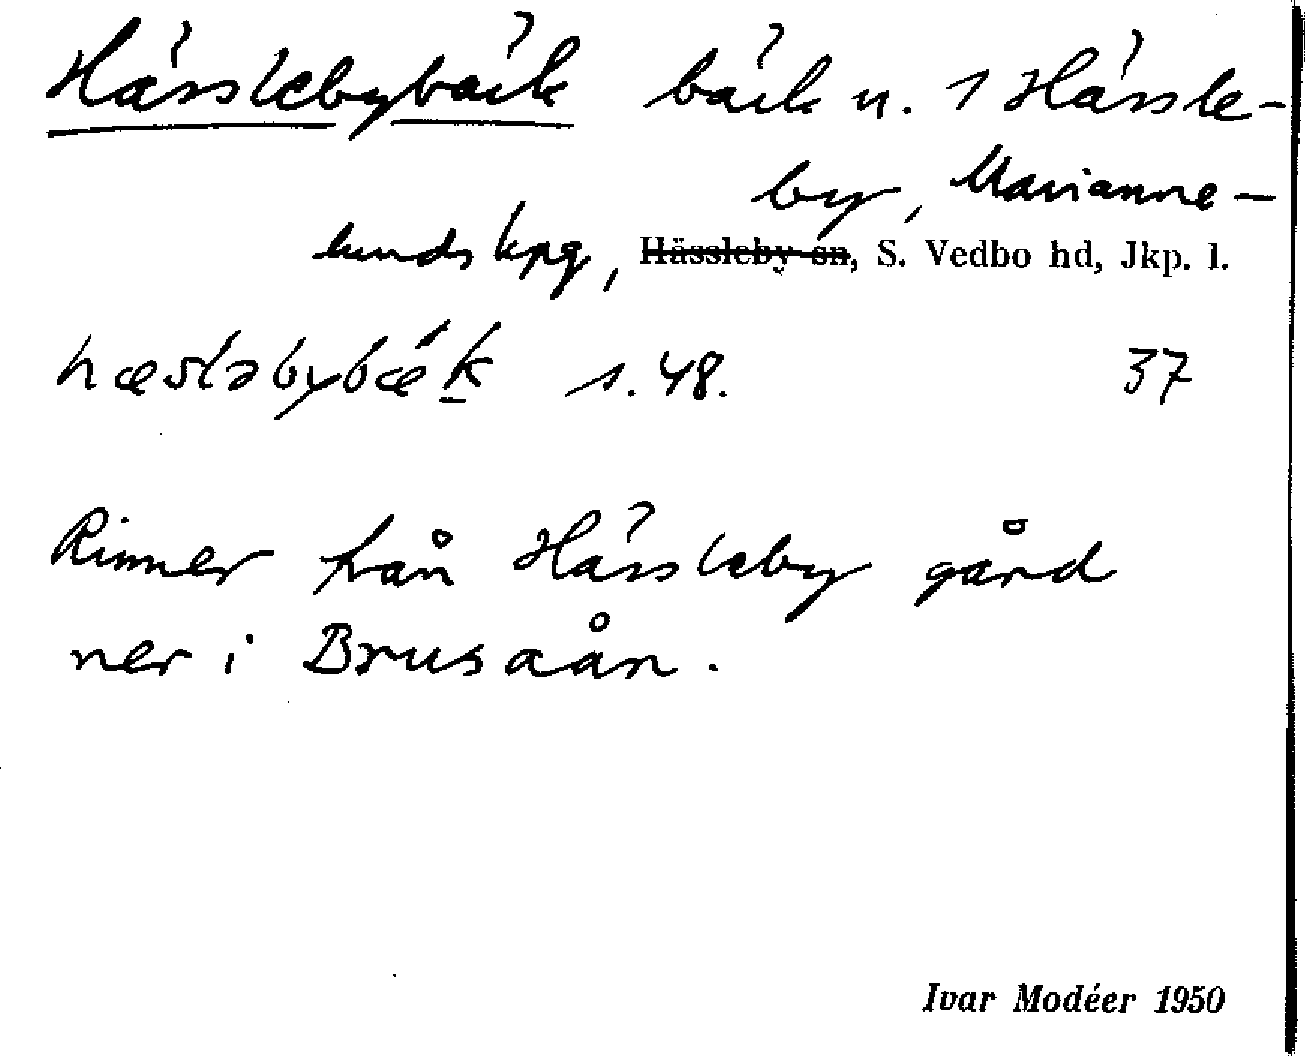 Hässlebybäck bäck u. 1 Hässle-
by, Marianne-
lunds kpg, Hässleby sn, S. Vedbo hd, Jkp. l.
hæsləbybæk s. 48. 37
Rinner från Hässleby gård
ner i Brusaån.
Ivar Modéer 1950